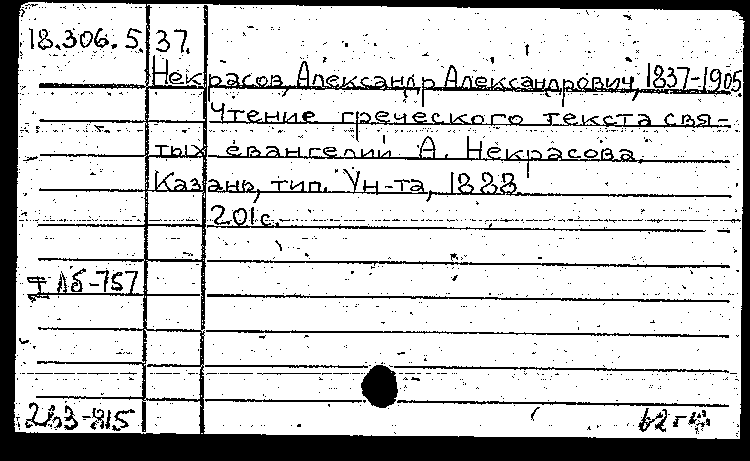 18.306.5.37.
Некрасов, Александр Александрович, 1837-1905
Чтение греческого текста свя-
тых евангелий А. Некрасова.
Казань, тип. Ун-та, 1888
201 с.
I Лб-757